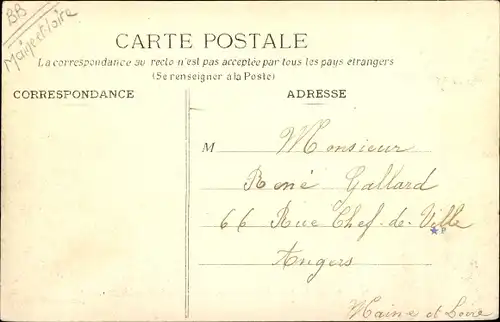 BB
Maine et Loire
CARTE POSTALE
La correspondance au recto n'est pas acceptée par tous les pays étrangers
(Se renseigner à la Poste)
CORRESPONDANCE
ADRESSE
M Monsieur
René Gallard
66 Rue Chef-de-Ville
Angers
Maine et Loire